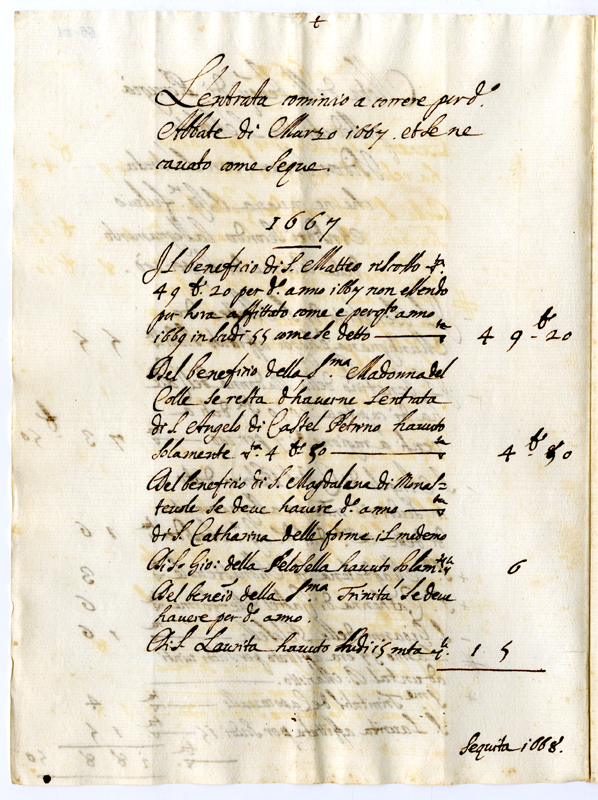 L'entrata cominio a correre per d.º
Abbate di Marzo 1667. et se ne
cavato come seque.
1667
Il beneficio di S. Matteo riscosso
49 b. 20 per d.º anno 1667 non essendo
pur hora affittato come e per q.to anno
1669 in scudi 55 come se detto 49 - b. 20
Del beneficio della S.ma Madonna del
Colle se resta d'haverne l'entrata
di S. Angelo di Castel Petrino havuto
solamente 4 b. 50 4 b. 50
Del beneficio di S. Magdalena di Monas=
terole se deve havere d.º anno
di S. Catharina delle forme il medemo
Di S. Gio: della Pelosella havuto solam.te 6
Del beneio della S.ma Trinita' se deve
havere per d.º anno.
Di S. Laurita havuto scudi 15 m.ta 15
Sequita 1668.